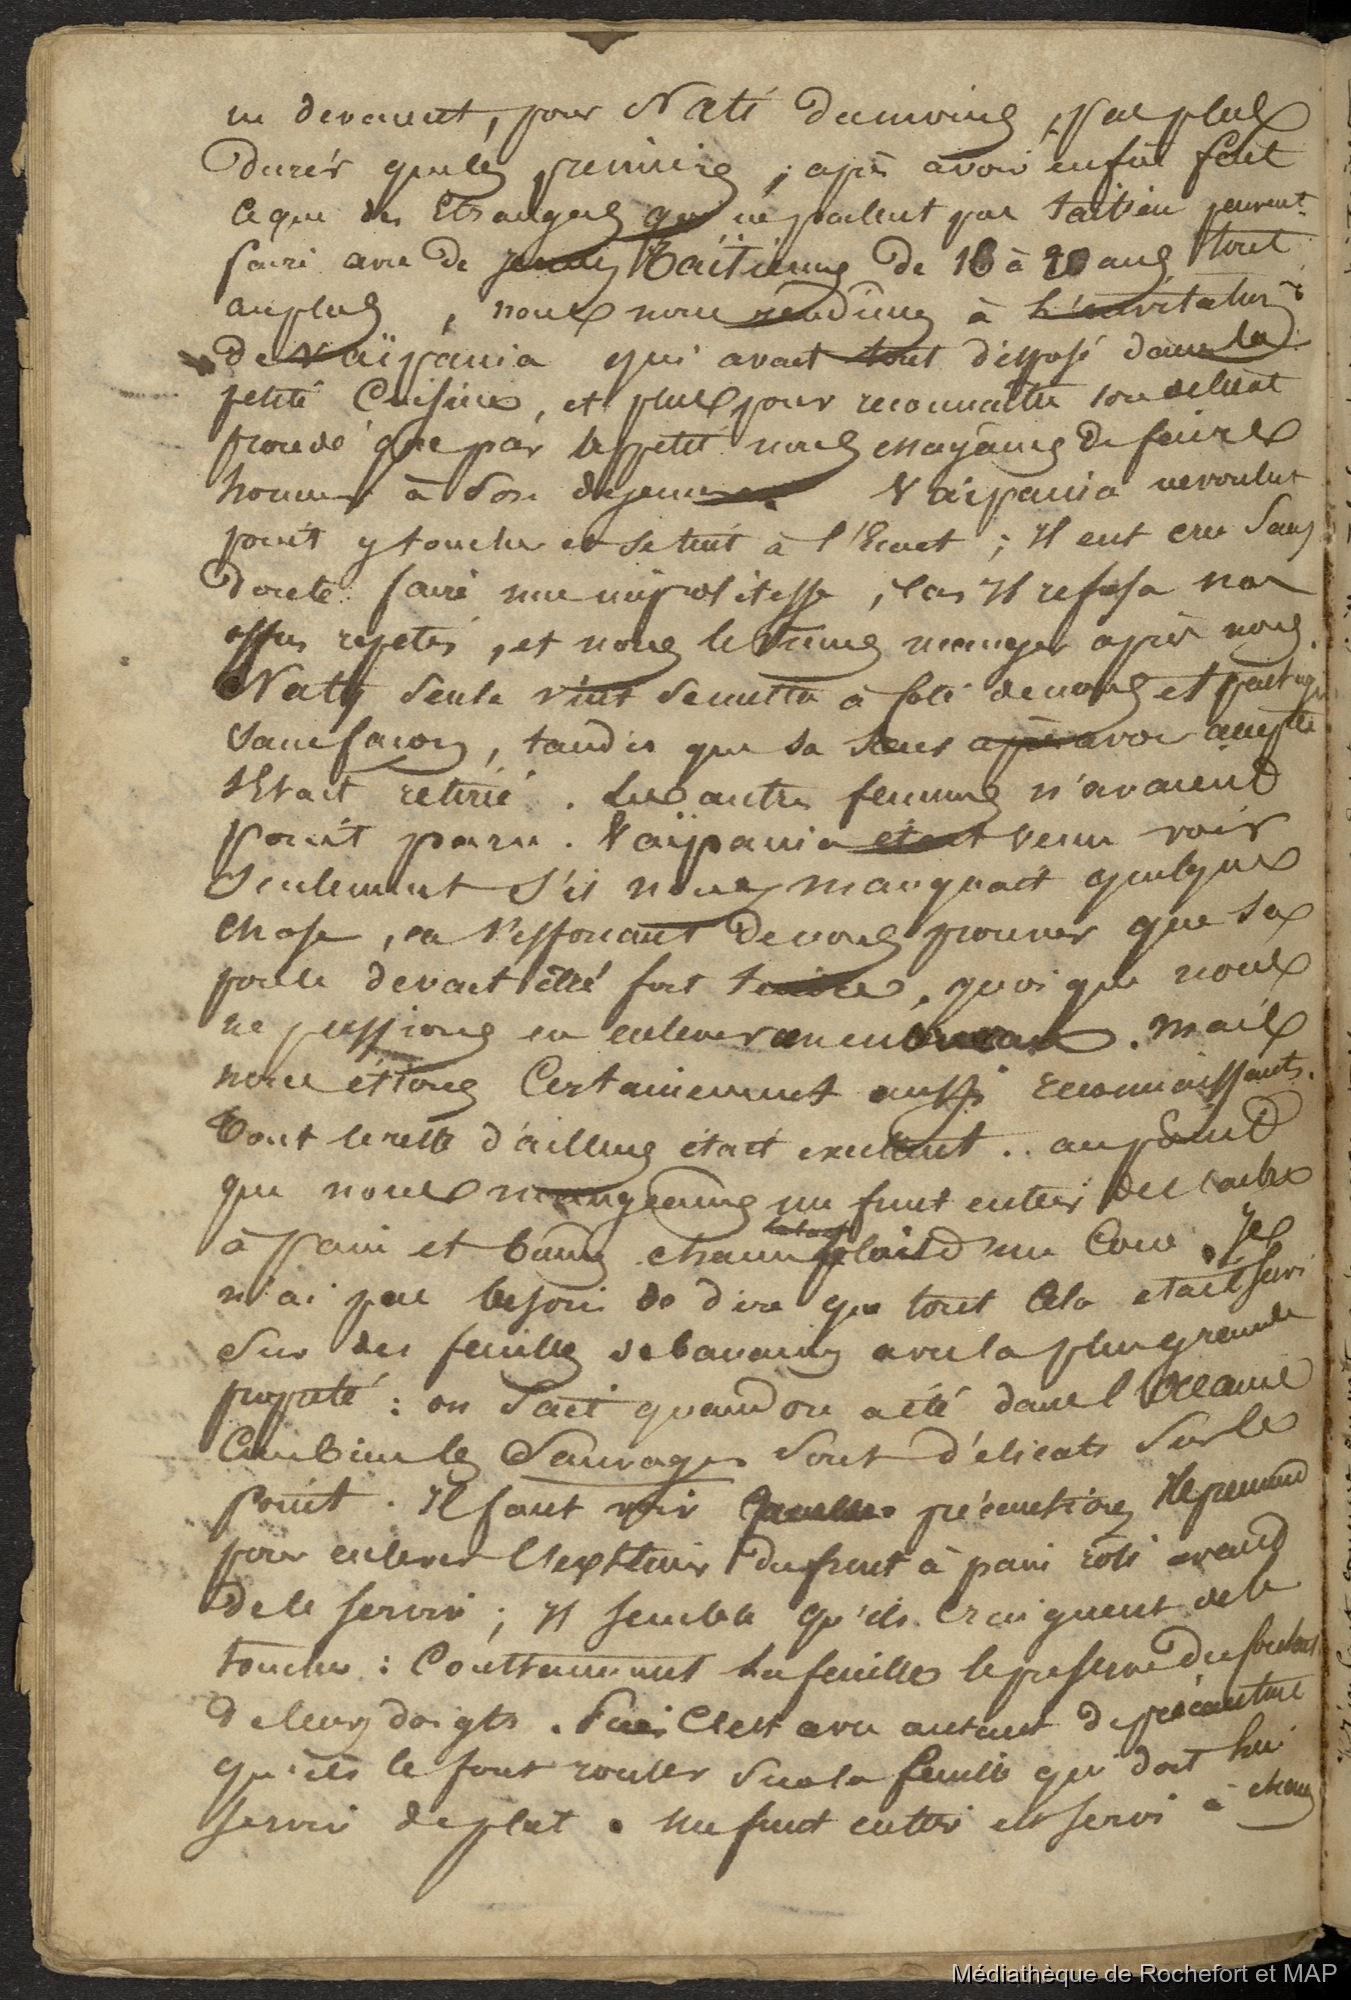 ne devaient, pour Naté dumoins, pas plus
durer que les premiers ; après avoir enfin fait
ce que des Etrangers qui ne parlent pas taitien peuvent
faire avec de jeunes Taïtiennes de 18 à 20 ans tout
au plus, nous nous rendîmes à l'invitation
de Vaïpania qui avait tout disposé dans la
petite Cuisine, et plus pour reconnaître son
que par appetit nous essayâmes de faire
honneur à son dejeuner. Vaïpania ne voulut
point y toucher et se tint à l'Ecart ; Il eut cru sans
doute faire une impolitesse, car Il refusa nos
offres repetés, et nous le vîmes manger après nous.
Naty seule vint se mettre à coté de nous et partagea
sans façons, tandis que sa Soeur après avoir
s'Etait retirée. Les autres femmes n'avaient
point paru. Vaïpania étant venu voir
seulement s'il nous manquait quelque
chose, en s'efforcant de nous prouver que sa
poule devait être fort tendre, quoi que nous
ne pussions en enlever un morceau. mais
nous étions Certainement aussi reconnaissants.
Tout le reste d'ailleurs était excellent .. au point
que nous mangeâmes un fruit entier de l'arbre
à pain et bûmes chacun un Coco. Je
n'ai pas besoin de dire que tout Cela etait servi
Sur des feuilles de bananier avec la plus grande
propreté : on Sait quand on a été dans l'Oceanie
Combien les Sauvages sont délicats sur le
point. Il faut voir quelles précautions Ils prennent
pour enlever l'extérieur du fruit à pain roti avant
de le servir ; Il semble qu'ils craignent de le
toucher : Constamment la feuille le preserve du contact
de leurs doigts. Puis C'est avec autant de précautions
qu'ils le font rouler sur la feuille qui doit lui
servir de plat. Un fruit entier est servi à chacun
Médiathèque de Rochefort et MAP